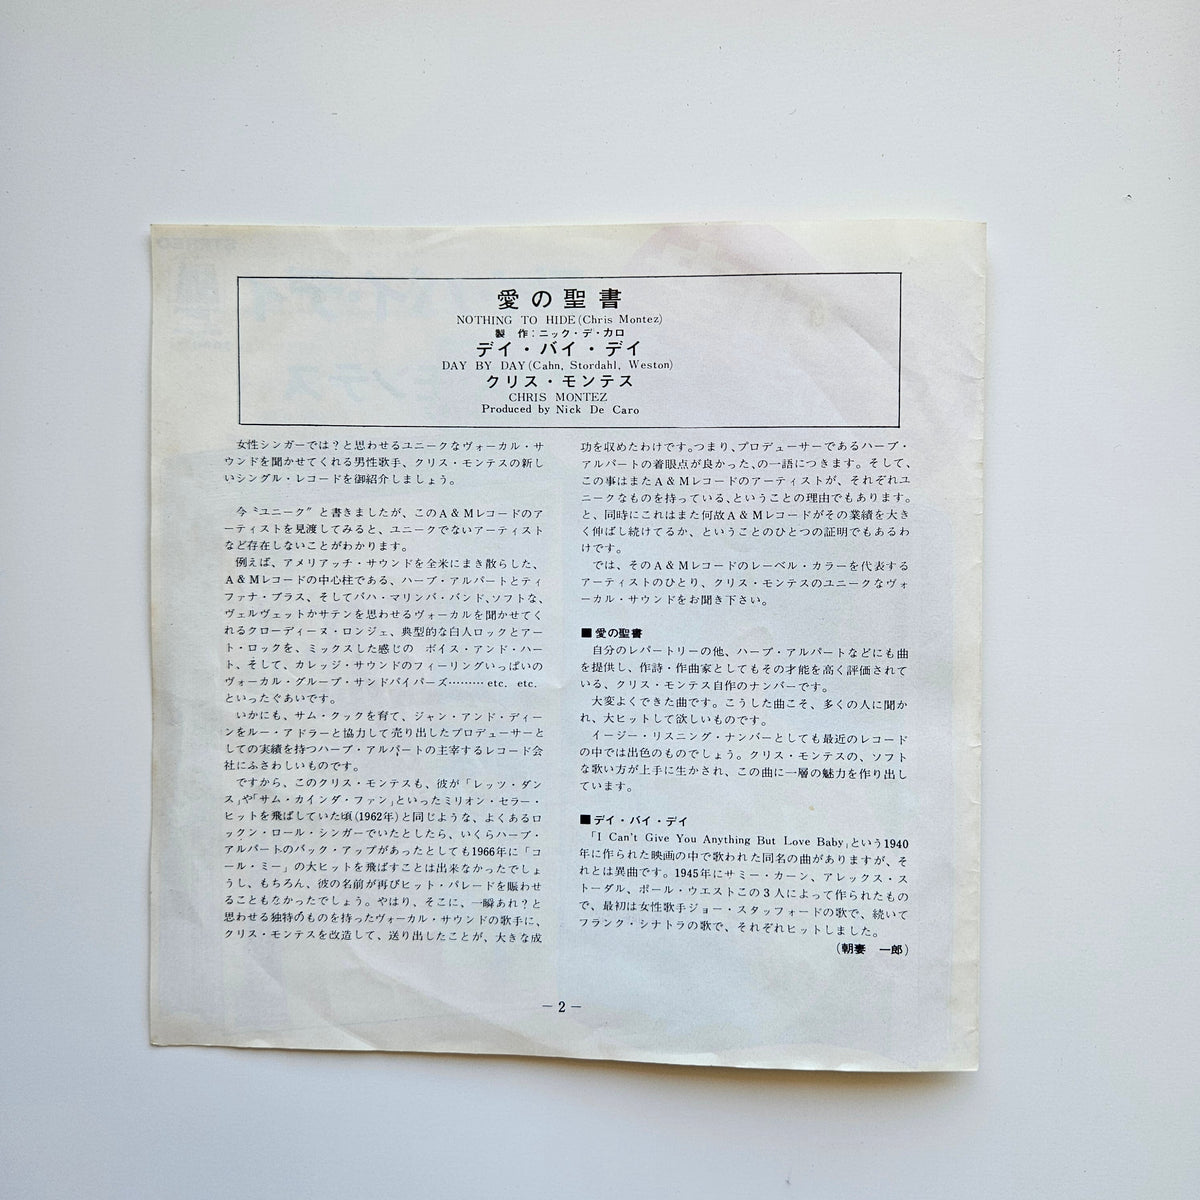 愛の聖書
NOTHING TO HIDE (Chris Montez)
製作:ニック・デ・カロ
デイ・バイ・デイ
DAY BY DAY (Cahn, Stordahl, Weston)
クリス・モンテス
CHRIS MONTEZ
Produced by Nick De Caro
女性シンガーでは?と思わせるユニークなヴォーカル・サ
ウンドを聞かせてくれる男性歌手、クリス・モンテスの新し
いシングル・レコードを御紹介しましょう。
今〝ユニーク〟と書きましたが、このA&Mレコードのア
ーティストを見渡してみると、ユニークでないアーティスト
など存在しないことがわかります。
例えば、アメリアッチ・サウンドを全米にまき散らした、
A&Mレコードの中心柱である、ハーブ・アルパートとティ
ファナ・ブラス、そしてバハ・マリンバ・バンド、ソフトな、
ヴェルヴェットかサテンを思わせるヴォーカルを聞かせてく
れるクローディーヌ・ロンジェ、典型的な白人ロックとアー
ト・ロックを、ミックスした感じの ボイス・アンド・ハー
ト、そして、カレッジ・サウンドのフィーリングいっぱいの
ヴォーカル・グループ・サンドパイパーズ………etc. etc.
といったぐあいです。
いかにも、サム・クックを育て、ジャン・アンド・ディー
ンをルー・アドラーと協力して売り出したプロデューサーと
しての実績を持つハーブ・アルパートの主宰するレコード会
社にふさわしいものです。
ですから、このクリス・モンテスも、彼が「レッツ・ダン
ス」や「サム・カインダ・ファン」といったミリオン・セラー・
ヒットを飛ばしていた頃(1962年)と同じような、よくあるロ
ックン・ロール・シンガーでいたとしたら、いくらハーブ・
アルパートのバック・アップがあったとしても1966年に「コ
ール・ミー」の大ヒットを飛ばすことは出来なかったでしょ
うし、もちろん、彼の名前が再びヒット・パレードを賑わせ
ることもなかったでしょう。やはり、そこに、一瞬あれ?と
思わせる独特のものを持ったヴォーカル・サウンドの歌手に、
クリス・モンテスを改造して、送り出したことが、大きな成
功を収めたわけです。つまり、プロデューサーであるハーブ・
アルパートの着眼点が良かった、の一語につきます。そして、
この事はまたA&Mレコードのアーティストが、それぞれユ
ニークなものを持っている、ということの理由でもあります。
と、同時にこれはまた何故A&Mレコードがその業績を大き
く伸ばし続けてるか、ということのひとつの証明でもあるわ
けです。
では、そのA&Mレコードのレーベル・カラーを代表する
アーティストのひとり、クリス・モンテスのユニークなヴォ
ーカル・サウンドをお聞き下さい。
■愛の聖書
自分のレパートリーの他、ハーブ・アルパートなどにも曲
を提供し、作詩・作曲家としてもその才能を高く評価されて
いる、クリス・モンテス自作のナンバーです。
大変よくできた曲です。こうした曲こそ、多くの人に聞か
れ、大ヒットして欲しいものです。
イージー・リスニング・ナンバーとしても最近のレコード
の中では出色のものでしょう。クリス・モンテスの、ソフト
な歌い方が上手に生かされ、この曲に一層の魅力を作り出し
ています。
■デイ・バイ・デイ
「I Can't Give You Anything But Love Baby」という1940
年に作られた映画の中で歌われた同名の曲がありますが、そ
れとは異曲です。1945年にサミー・カーン、アレックス・ス
トーダル、ポール・ウエストこの3人によって作られたもの
で、最初は女性歌手ジョー・スタッフォードの歌で、続いて
フランク・シナトラの歌で、それぞれヒットしました。
(朝妻 一郎)
－2－